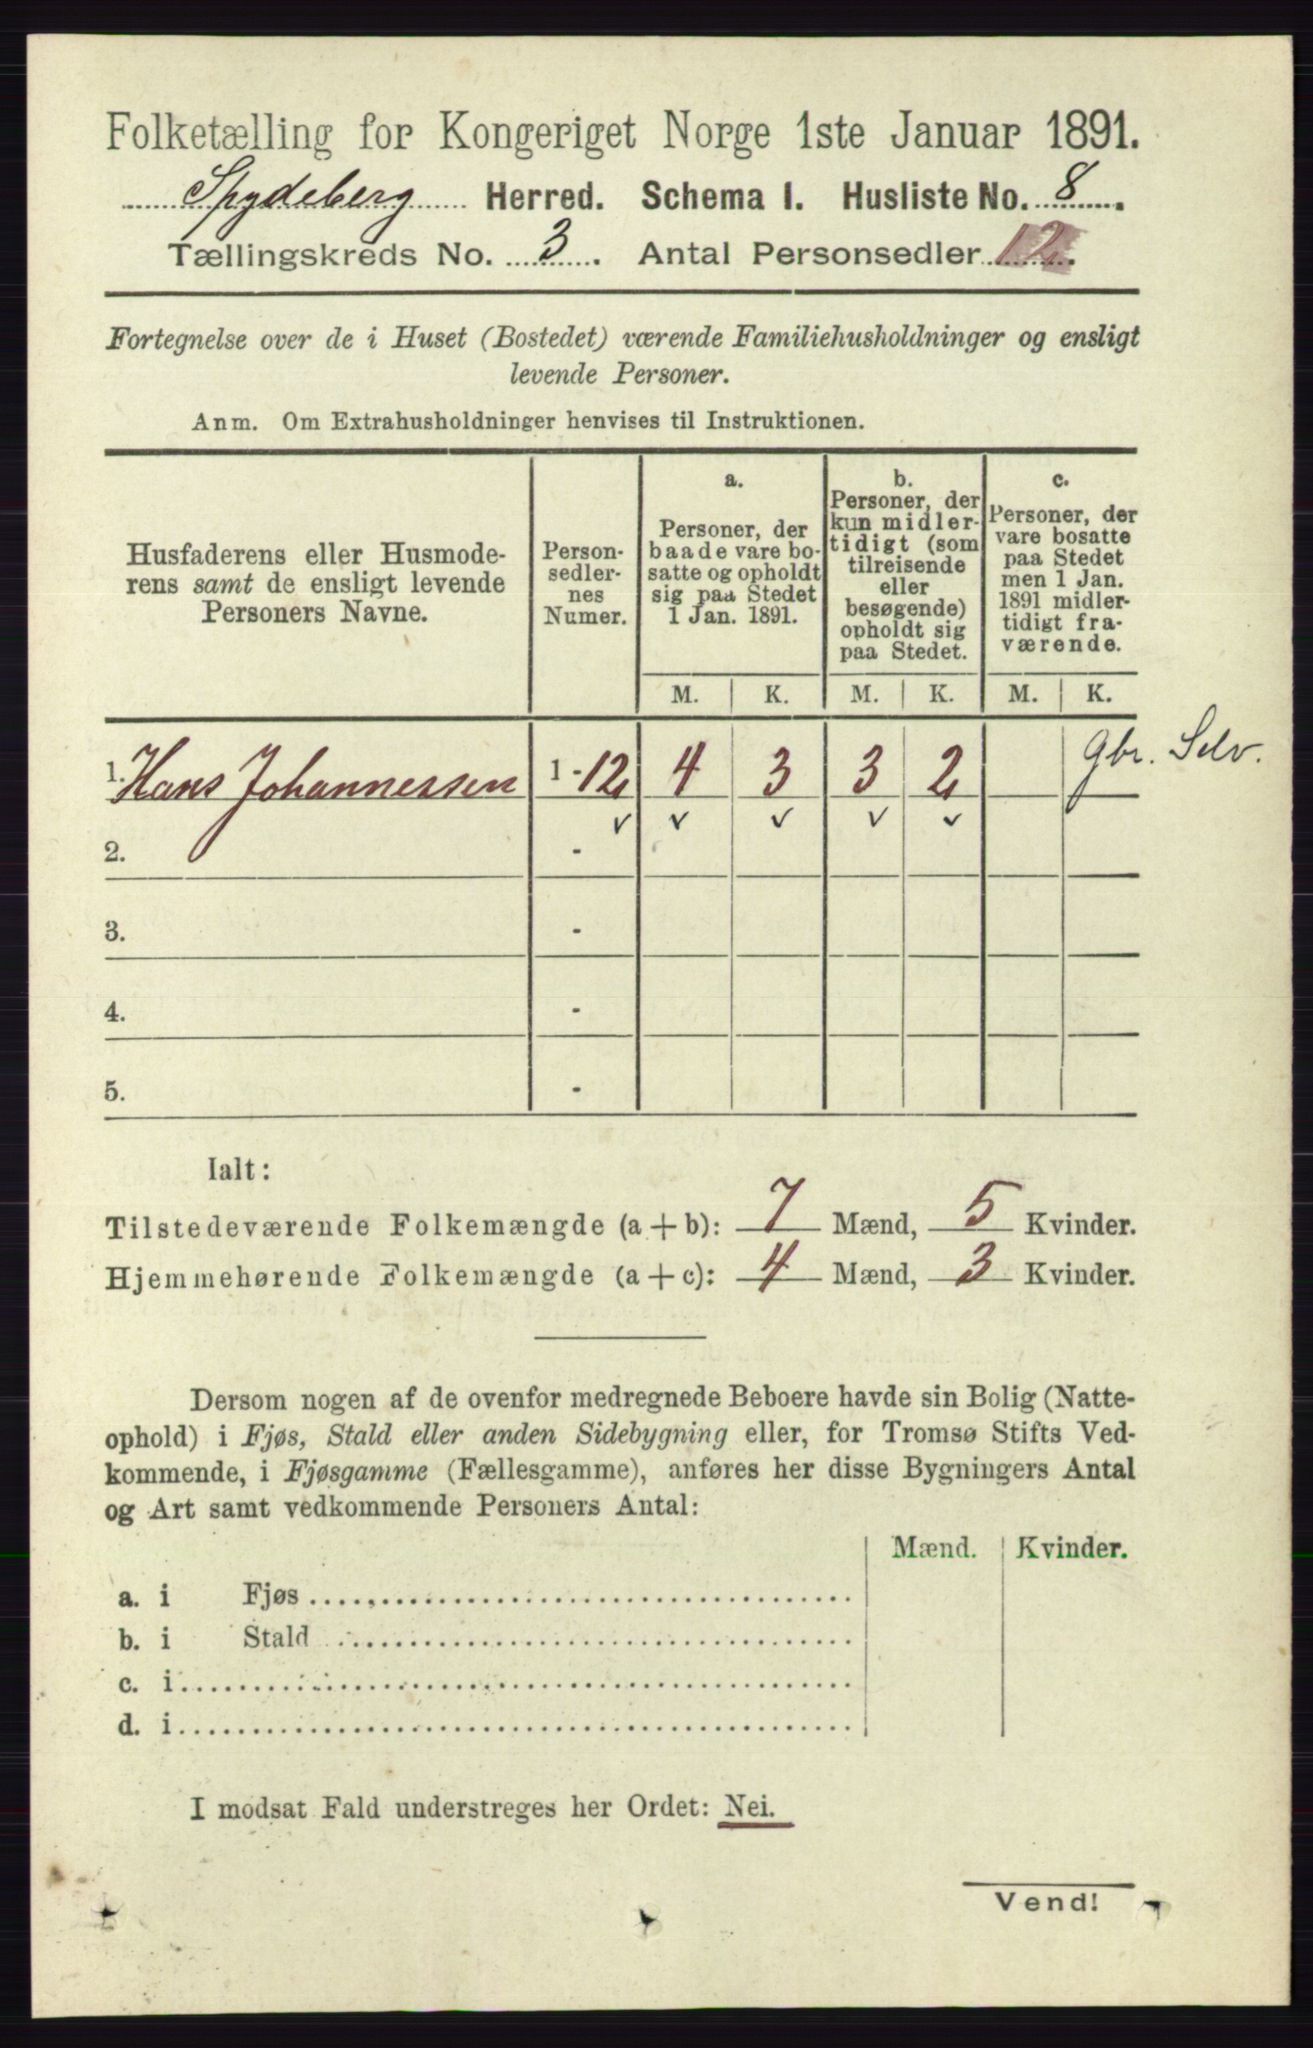 Folketælling for Kongeriget Norge 1ste Januar 1891.
Spydeberg Herred. Schema I. Husliste No. 8.
Tællingskreds No. 3. Antal Personsedler 12.
Fortegnelse over de i Huset (Bostedet) værende Familiehusholdninger og ensligt
levende Personer.
Anm. Om Extrahusholdninger henvises til Instruktionen.
Husfaderens eller Husmode-
rens samt de ensligt levende
Personers Navne.
Person-
sedler-
nes
Numer.
a.
Personer, der
baade vare bo-
satte og opholdt
sig paa Stedet
1 Jan. 1891.
b.
Personer, der
kun midler-
tidigt (som
tilreisende
eller
besøgende)
opholdt sig
paa Stedet.
c.
Personer, der
vare bosatte
paa Stedet
men 1 Jan.
1891 midler-
tidigt fra-
værende.
M. K. M. K. M. K.
1. Hans Johannessen 1 - 12 4 3 3 2 gbr. Selv.
2. -
3. -
4. -
5. -
Ialt:
Tilstedeværende Folkemængde (a + b): 7 Mænd, 5 Kvinder.
Hjemmehørende Folkemængde (a + c): 4 Mænd, 3 Kvinder.
Dersom nogen af de ovenfor medregnede Beboere havde sin Bolig (Natte-
ophold) i Fjøs, Stald eller anden Sidebygning eller, for Tromsø Stifts Ved-
kommende, i Fjøsgamme (Fællesgamme), anføres her disse Bygningers Antal
og Art samt vedkommende Personers Antal:
Mænd. Kvinder.
a. i Fjøs
b. i Stald
c. i
d. i
I modsat Fald understreges her Ordet: Nei.
Vend!